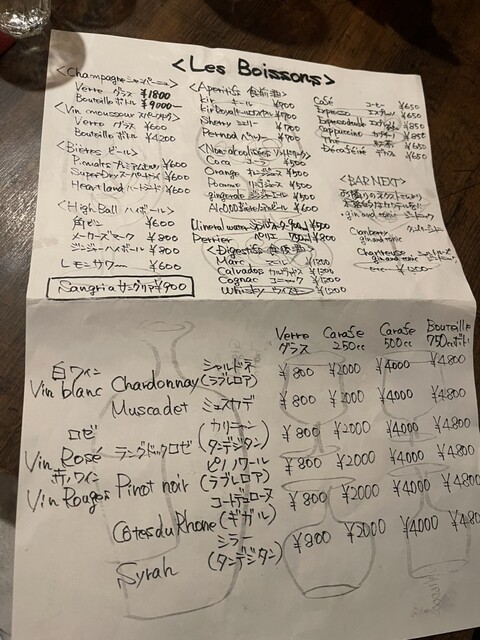 <Les Boissons>
<Champagne シャンパーニュ>
Verre グラス ¥1800
Bouteille ボトル ¥9000
<Vin mousseux スパークリング>
Verre グラス ¥600
Bouteille ボトル ¥4200
<Bières ビール>
¥600
SuperDry スーパードライ ¥600
Heartland ハートランド ¥600
<High Ball ハイボール>
角ビン ¥600
メーカーズマーク ¥800
ジンジャーハイボール ¥800
レモンサワー ¥600
Sangria サングリア ¥900
<Apéritifs 食前酒>
Kir キール ¥700
Kir Royal
Sherry シェリー ¥700
Pernod ペルノー ¥700
Coca コーラ ¥500
Orange オレンジジュース ¥500
Pomme リンゴジュース ¥500
gingerale ジンジャーエール ¥500
¥600
Mineral water
Perrier ペリエ 750ml ¥800
<Digestifs 食後酒>
Marc マール ¥1200
Calvados カルヴァドス ¥1200
Cognac コニャック ¥1200
Whiskey ウイスキー ¥1200
Café コーヒー ¥650
Espresso エスプレッソ ¥650
¥850
Cappuccino カプチーノ ¥850
Thé 紅茶 ¥650
Décaféiné デカフェ ¥650
<BAR NEXT>
gin and tonic
Cranberry
gin and tonic
Chartreuse
gin and tonic
etc... ¥1200
Verre グラス Carafe 250cc Carafe 500cc Bouteille 750cc ボトル
白ワイン Vin blanc Chardonnay シャルドネ (ラブレロア) ¥800 ¥2000 ¥4000 ¥4800
Muscadet ミュスカデ ¥800 ¥2000 ¥4000 ¥4800
ロゼ Vin Rosé ラングドックロゼ (カリニャン) (タンデジタン) ¥800 ¥2000 ¥4000 ¥4800
赤ワイン Vin Rouges Pinot noir ピノノワール (ラブレロア) ¥800 ¥2000 ¥4000 ¥4800
Côtes du Rhône コートデュローヌ (ギガル) ¥800 ¥2000 ¥4000 ¥4800
Syrah シラー (タンデジタン) ¥800 ¥2000 ¥4000 ¥480